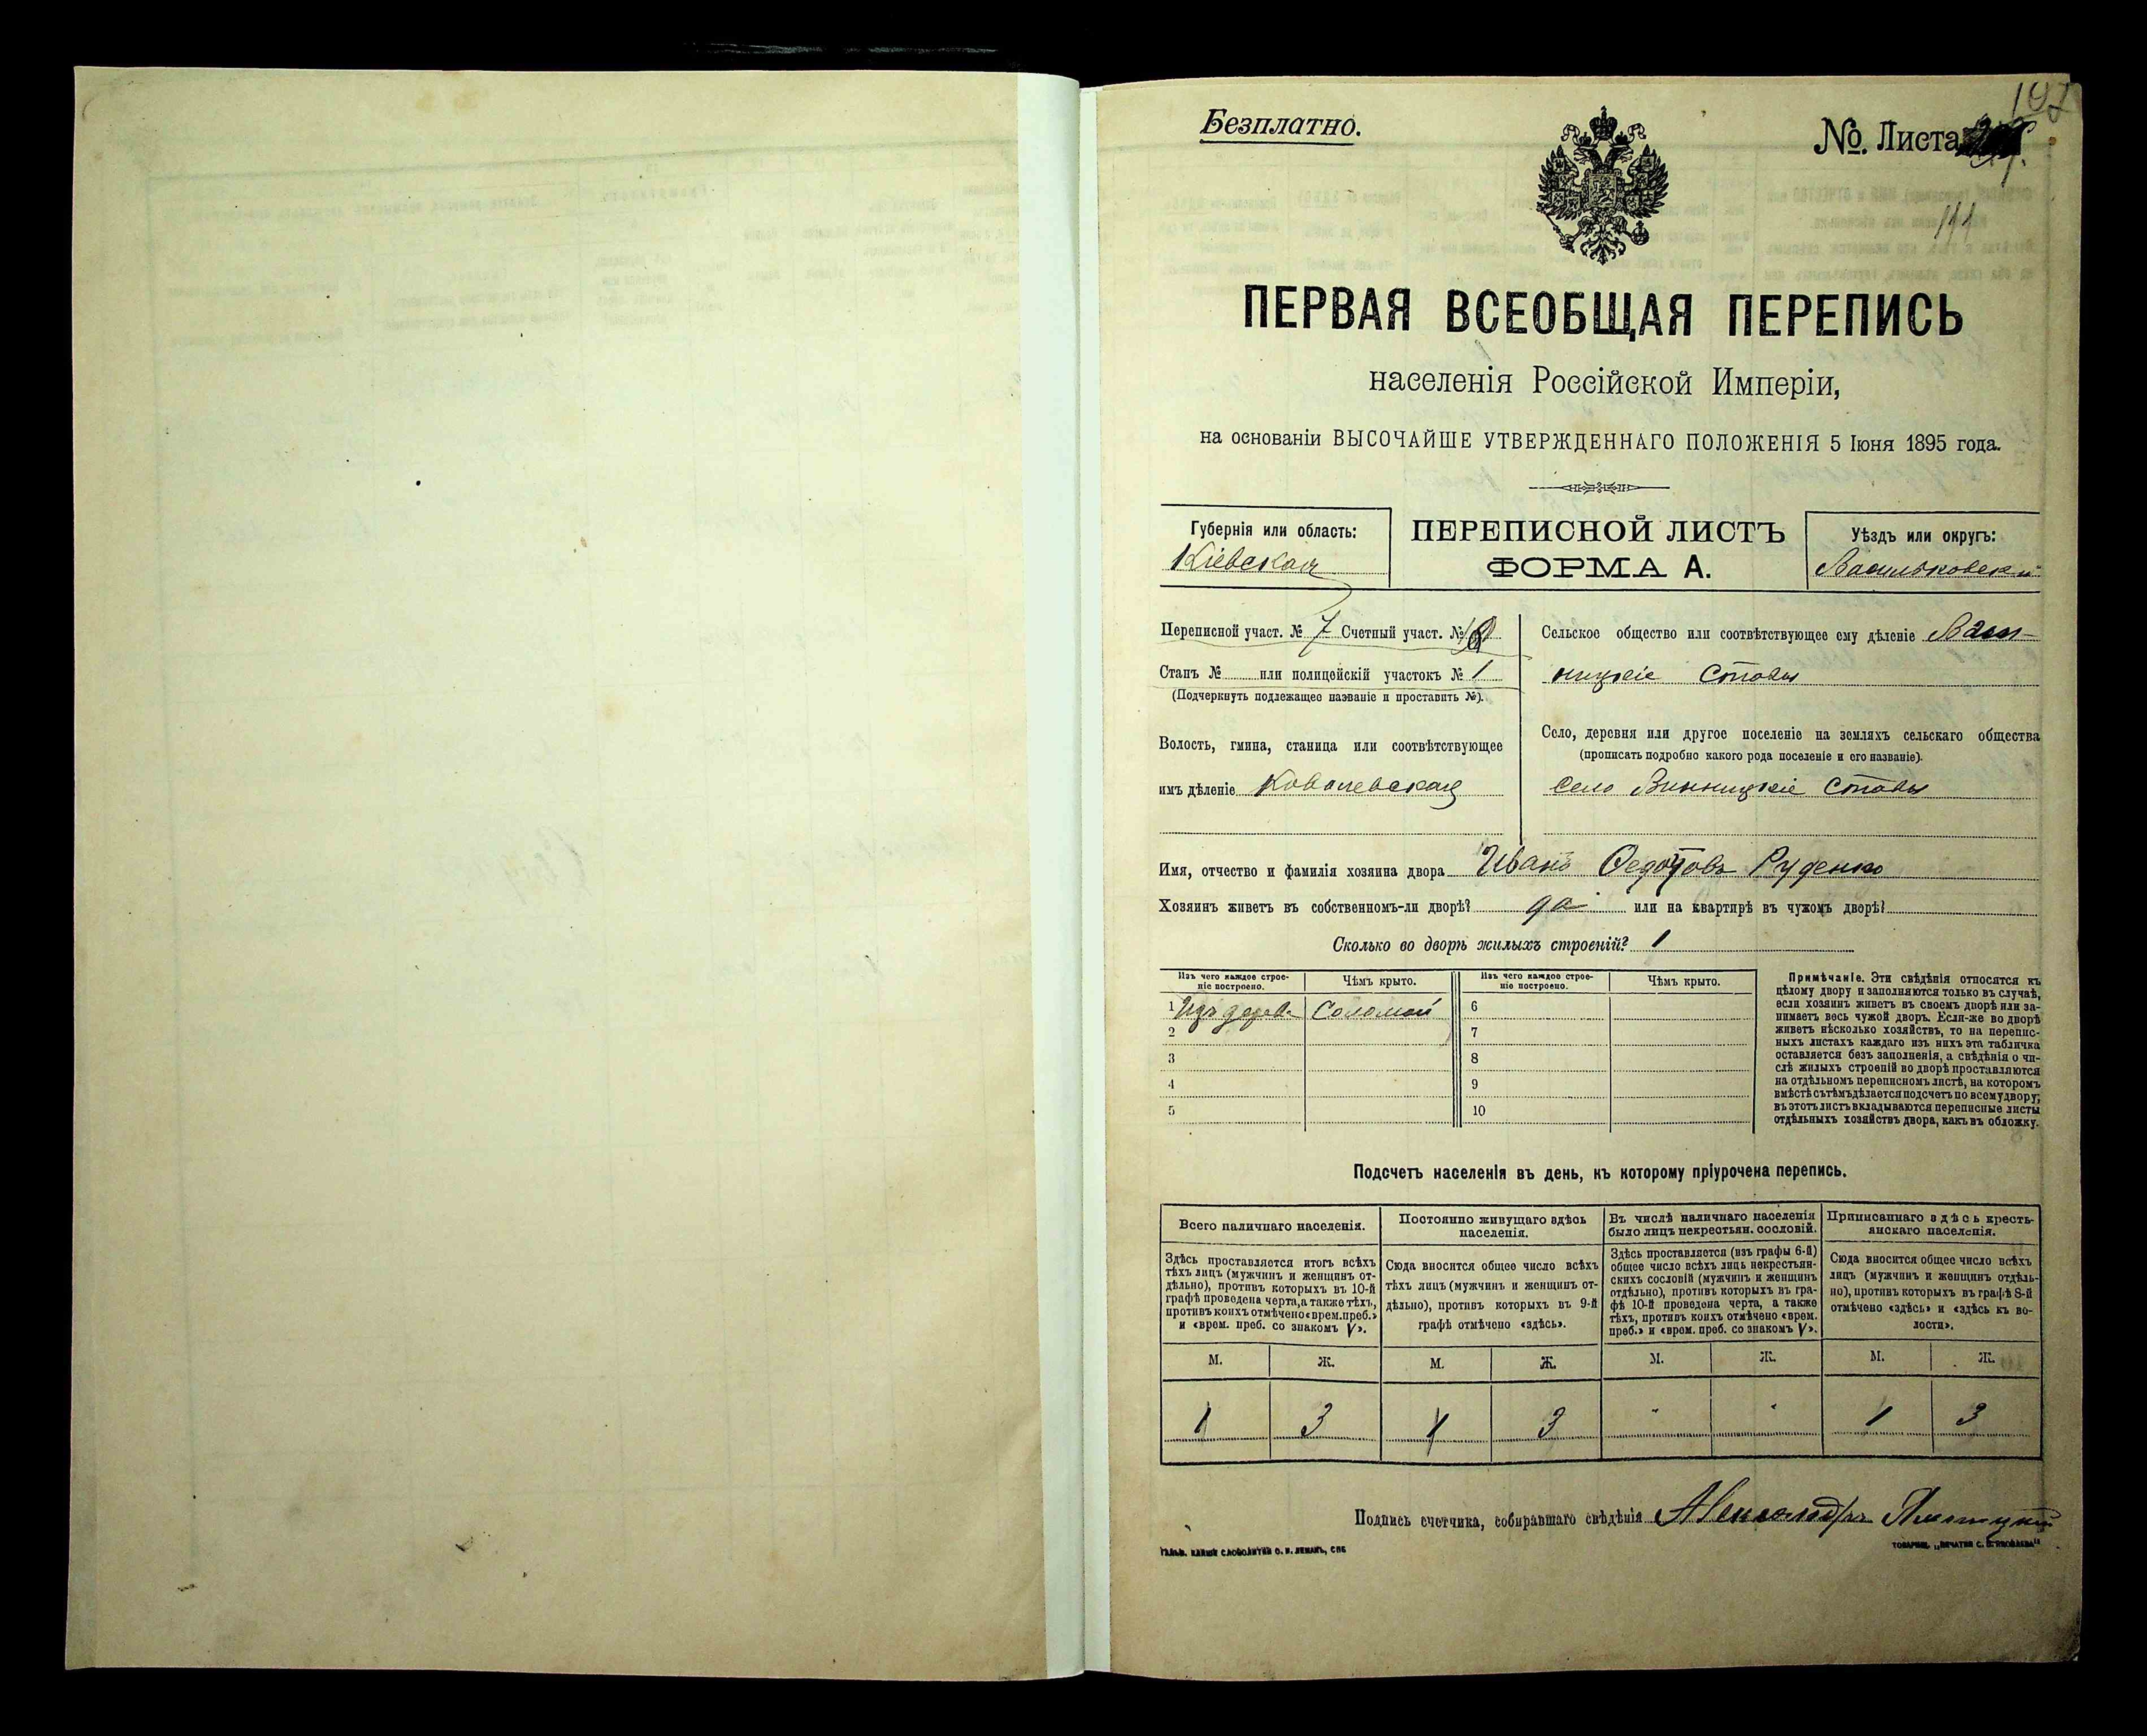 Безплатно.
№ Листа
ПЕРВАЯ ВСЕОБЩАЯ ПЕРЕПИСЬ
населенія Россійской Имперіи,
на основаніи ВЫСОЧАЙШЕ УТВЕРЖДЕННАГО ПОЛОЖЕНІЯ 5 Іюня 1895 года.
Губернія или область:
Кіевская
ПЕРЕПИСНОЙ ЛИСТЪ
ФОРМА А.
Уѣздъ или округъ:
Васильковскій
Переписной участ. № 7 Счетный участ. №
Станъ № или полицейскій участокъ № 1
(Подчеркнуть подлежащее названіе и проставить №).
Волость, гмина, станица или соотвѣтствующее
имъ дѣленіе Ковалевская
Сельское общество или соотвѣтствующее ему дѣленіе
ницкіе Ставы
Село, деревня или другое поселеніе на земляхъ сельскаго общества
(прописать подробно какого рода поселеніе и его названіе).
село Винницкіе Ставы
Имя, отчество и фамилія хозяина двора Иванъ Федотовъ Руденко
Хозяинъ живетъ въ собственномъ-ли дворѣ? да или на квартирѣ въ чужомъ дворѣ?
Сколько во дворѣ жилыхъ строеній? 1
Изъ чего каждое строе-
ніе построено.
Чѣмъ крыто.
1 Изъ дерева Соломой
2
3
4
5
Изъ чего каждое строе-
ніе построено.
Чѣмъ крыто.
6
7
8
9
10
Примѣчаніе. Эти свѣдѣнія относятся къ
цѣлому двору и заполняются только въ случаѣ,
если хозяинъ живетъ въ своемъ дворѣ или за-
нимаетъ весь чужой дворъ. Если-же во дворѣ
живетъ нѣсколько хозяйствъ, то на перепис-
ныхъ листахъ каждаго изъ нихъ эта табличка
оставляется безъ заполненія, а свѣдѣнія о чи-
слѣ жилыхъ строеній во дворѣ проставляются
на отдѣльномъ переписномъ листѣ, на которомъ
вмѣстѣ съ тѣмъ дѣлается подсчетъ по всему двору;
въ этотъ листъ вкладываются переписные листы
отдѣльныхъ хозяйствъ двора, какъ въ обложку.
Подсчетъ населенія въ день, къ которому пріурочена перепись.
Всего наличнаго населенія.
Здѣсь проставляется итогъ всѣхъ
тѣхъ лицъ (мужчинъ и женщинъ от-
дѣльно), противъ которыхъ въ 10-й
графѣ проведена черта, а также тѣхъ,
противъ коихъ отмѣчено «врем. преб.»
и «врем. преб. со знакомъ V».
М. Ж.
1 3
Постоянно живущаго здѣсь
населенія.
Сюда вносится общее число всѣхъ
тѣхъ лицъ (мужчинъ и женщинъ от-
дѣльно), противъ которыхъ въ 9-й
графѣ отмѣчено «здѣсь».
М. Ж.
1 3
Въ числѣ наличнаго населенія
было лицъ некрестьян. сословій.
Здѣсь проставляется (изъ графы 6-й)
общее число всѣхъ лицъ некрестьян-
скихъ сословій (мужчинъ и женщинъ
отдѣльно), противъ которыхъ въ гра-
фѣ 10-й проведена черта, а также
тѣхъ, противъ коихъ отмѣчено «врем.
преб.» и «врем. преб. со знакомъ V».
М. Ж.
" "
Приписаннаго здѣсь кресть-
янскаго населенія.
Сюда вносится общее число всѣхъ
лицъ (мужчинъ и женщинъ отдѣль-
но), противъ которыхъ въ графѣ 8-й
отмѣчено «здѣсь» и «здѣсь къ во-
лости».
М. Ж.
1 3
Подпись счетчика, собиравшаго свѣдѣнія Александръ